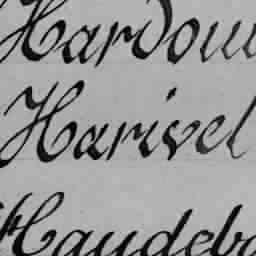 Hardoui
Harivel
Haudebo